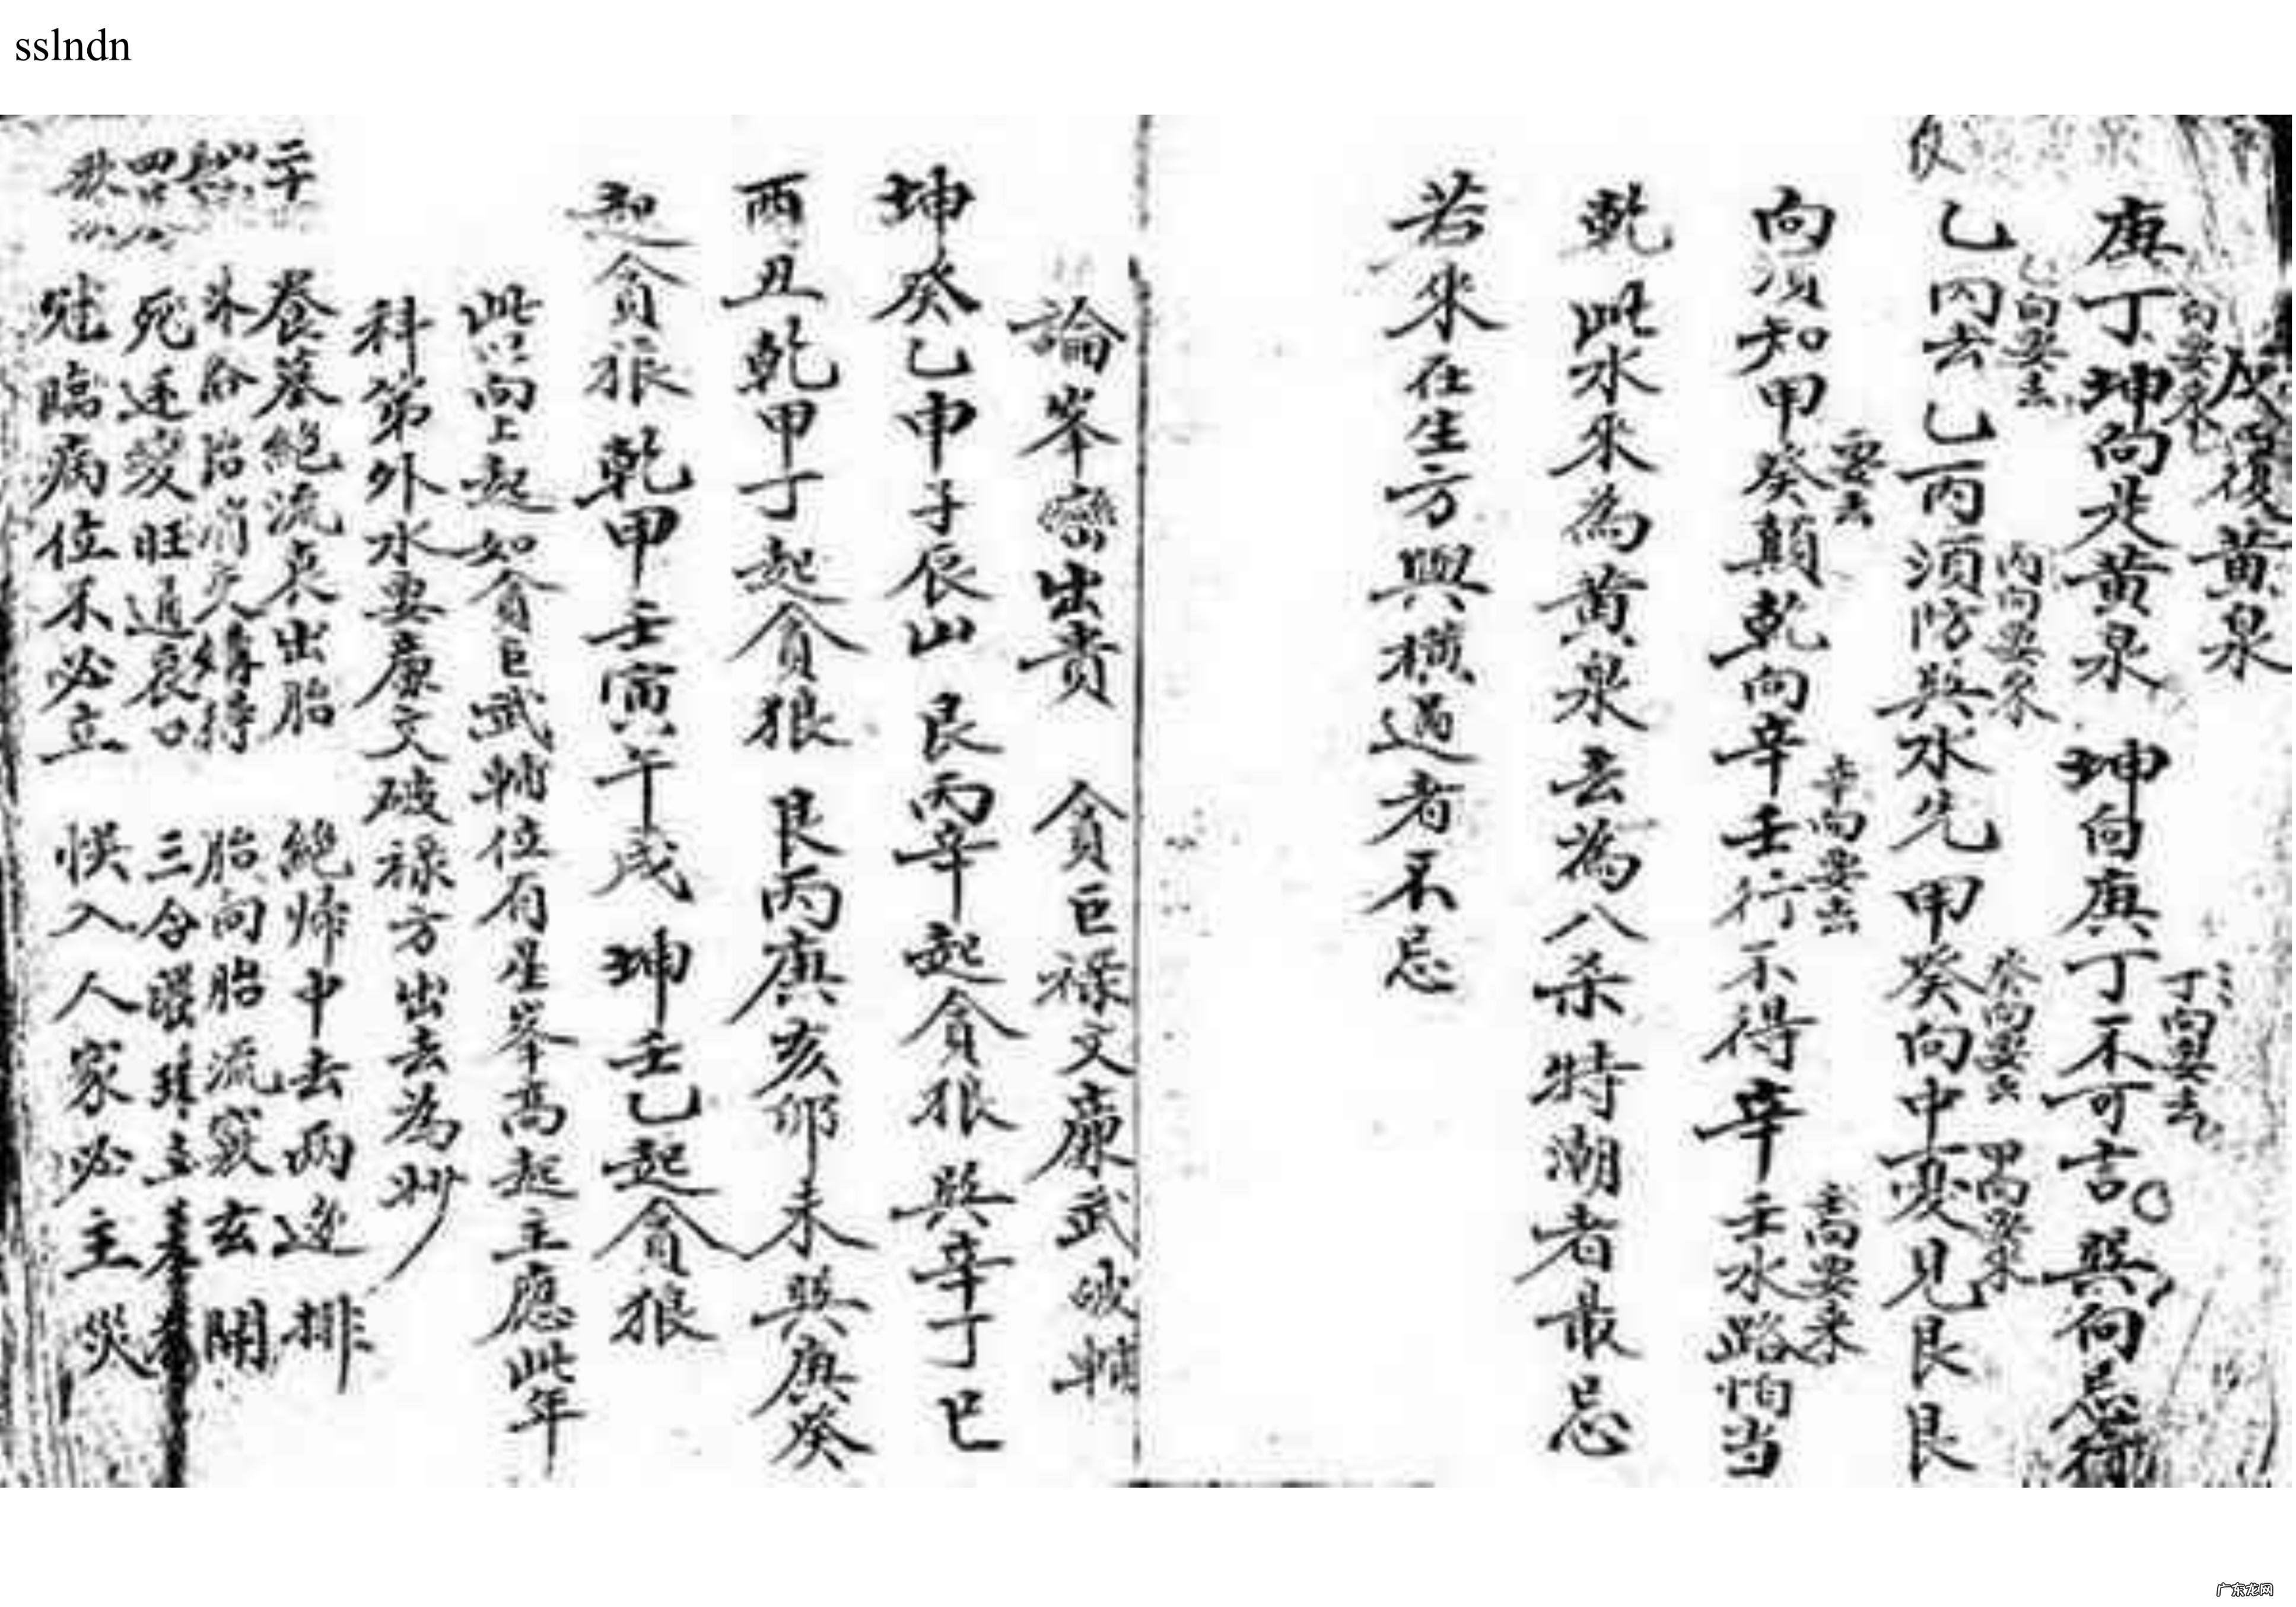 sslndn
反復黃泉
庚丁坤向是黃泉 坤向庚丁不可言 巽向忌行
向要來
丁向要去
乙丙去乙丙須防巽水先甲癸向中憂見艮艮
乙向要去
丙向要來
癸向要去
甲向要來
向須知甲癸顛乾向辛壬行不得辛壬水路怕当
要去
辛向要去
向要来
乾此水來為黃泉去為八杀特潮者最忌
若來在生方與横過者不忌
論峯巒出貴 貪巨禄文廉武破輔
坤癸乙申子辰山 艮丙辛起貪狼 巽辛丁巳
酉丑乾甲丁起貪狼 艮丙庚亥卯未巽庚癸
起貪狼 乾甲壬寅午戌 坤壬乙起貪狼
此向上起如貪巨武輔位有星峯高起主應此年
科第外水要廉文破禄方出去為妙
養墓絕流哀出胎 絕归中去両边排
胎向胎流竅玄開
死逆变旺道哀口 三合
臨病位不必立 悞入人家必主災
广东龙网